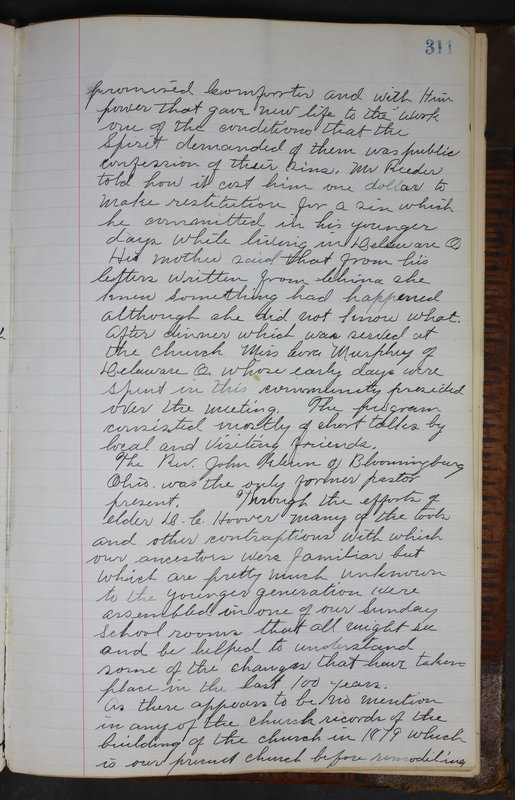 311
promised Comforter and with Him
power that gave new life to the work
one of the conditions that the
Spirit demanded of them was public
confession of their sins. Mr Reeder
told how it cost him one dollar to
make restitution for a sin which
he committed in his younger
days while living in Delaware O
His mother said that from his
letters written from China she
knew something had happened
although she did not know what.
After dinner which was served at
the church Miss Cora Murphey of
Delaware O. whose early days were
spent in this community presided
over the meeting. The program
consisted mostly of short talks by
local and visiting friends.
The Rev. John of Bloomingburg
Ohio. was the only former pastor
present. Through the efforts of
elder D. C. Hoover many of the tools
and other contraptions with which
our ancestors were familiar but
which are pretty much unknown
to the younger generation were
assembled in one of our Sunday
School rooms that all might see
and be helped to understand
some of the changes that have taken
place in the last 100 years.
As there appears to be no mention
in any of the church records of the
building of the church in 1879 which
is our present church before remodeling